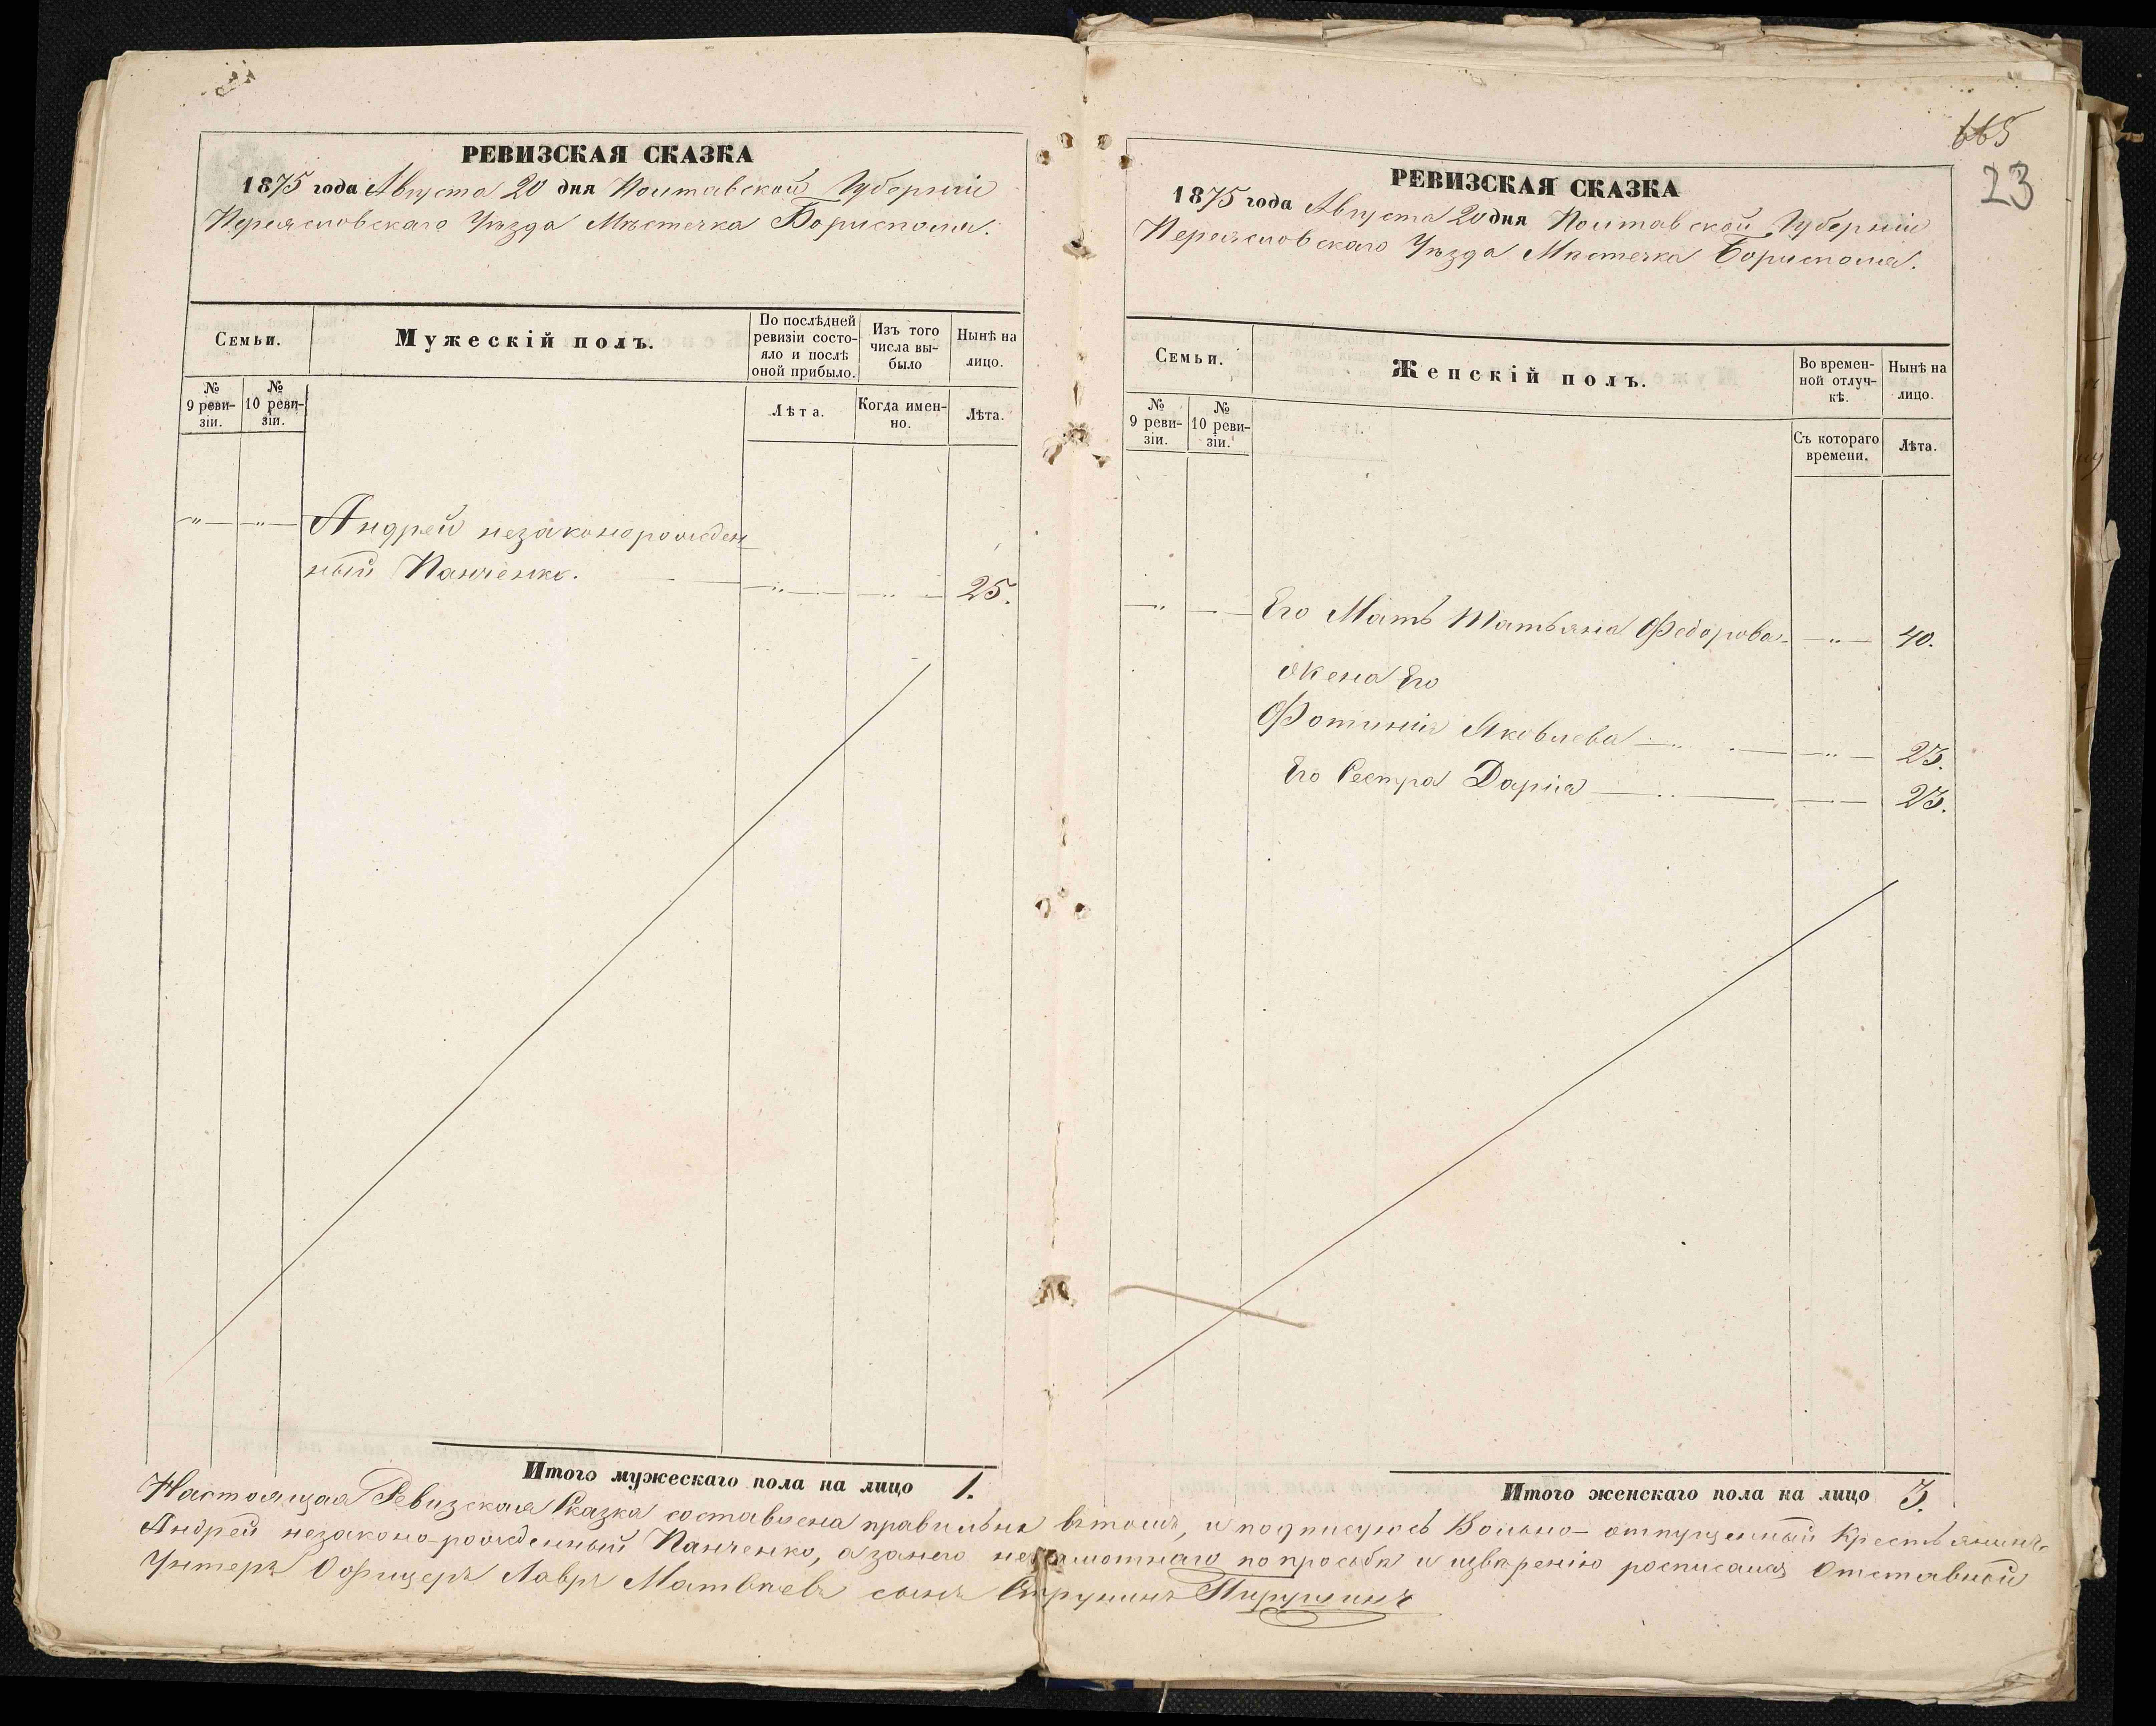 РЕВИЗСКАЯ СКАЗКА
1875 года Августа 20 дня Полтавской Губерніи
Переясловскаго Уѣзда Мѣстечка Борисполя.
Семьи.
Мужескій полъ.
По послѣдней ревизіи состояло и послѣ оной прибыло.
Изъ того числа выбыло
Нынѣ на лицо.
№ 9 ревизіи.
№ 10 ревизіи.
Лѣта.
Когда именно.
Лѣта.
Андрей незаконорожден
ный Панченко.
25.
Итого мужескаго пола на лицо 1.
665
23
РЕВИЗСКАЯ СКАЗКА
1875 года Августа 20 дня Полтавской Губерніи
Переясловскаго Уѣзда Мѣстечка Борисполя.
Семьи.
Женскій полъ.
Во временной отлучкѣ.
Нынѣ на лицо.
№ 9 ревизіи.
№ 10 ревизіи.
Съ котораго времени.
Лѣта.
Его Мать Татьяна Федорова 40.
Жена Его
Фотинія Яковлева 23.
Его Сестра Дарія 23.
Итого женскаго пола на лицо 3.
Настоящая Ревизская Сказка составлена правильно втомъ, и подписуюсь Вольно-отпущенный Крестьянинъ
Андрей незаконо-рожденный Панченко, а занего неграмотнаго по прозьбѣ и ... росписался Отставной
Унтеръ Офицеръ Лавръ Матвѣевъ сынъ